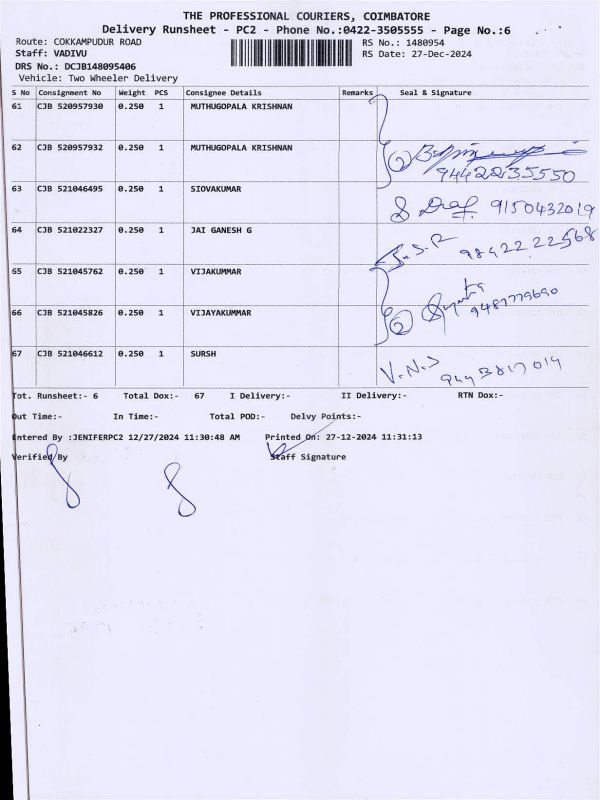 THE PROFESSIONAL COURIERS, COIMBATORE
Delivery Runsheet - PC2 - Phone No.:0422-3505555 - Page No.:6
Route: COKKAMPUDUR ROAD RS No.: 1480954
Staff: VADIVU RS Date: 27-Dec-2024
DRS No.: DCJB148095406
Vehicle: Two Wheeler Delivery
S No Consignment No Weight PCS Consignee Details Remarks Seal & Signature
61 CJB 520957930 0.250 1 MUTHUGOPALA KRISHNAN
62 CJB 520957932 0.250 1 MUTHUGOPALA KRISHNAN 2
9442235550
63 CJB 521046495 0.250 1 SIOVAKUMAR 9150432019
64 CJB 521022327 0.250 1 JAI GANESH G 98422 22568
65 CJB 521045762 0.250 1 VIJAKUMMAR
66 CJB 521045826 0.250 1 VIJAYAKUMMAR 2
67 CJB 521046612 0.250 1 SURSH V.N.J
Tot. Runsheet:- 6 Total Dox:- 67 I Delivery:- II Delivery:- RTN Dox:-
Out Time:- In Time:- Total POD:- Delvy Points:-
Entered By :JENIFERPC2 12/27/2024 11:30:48 AM Printed On: 27-12-2024 11:31:13
Verified By Staff Signature